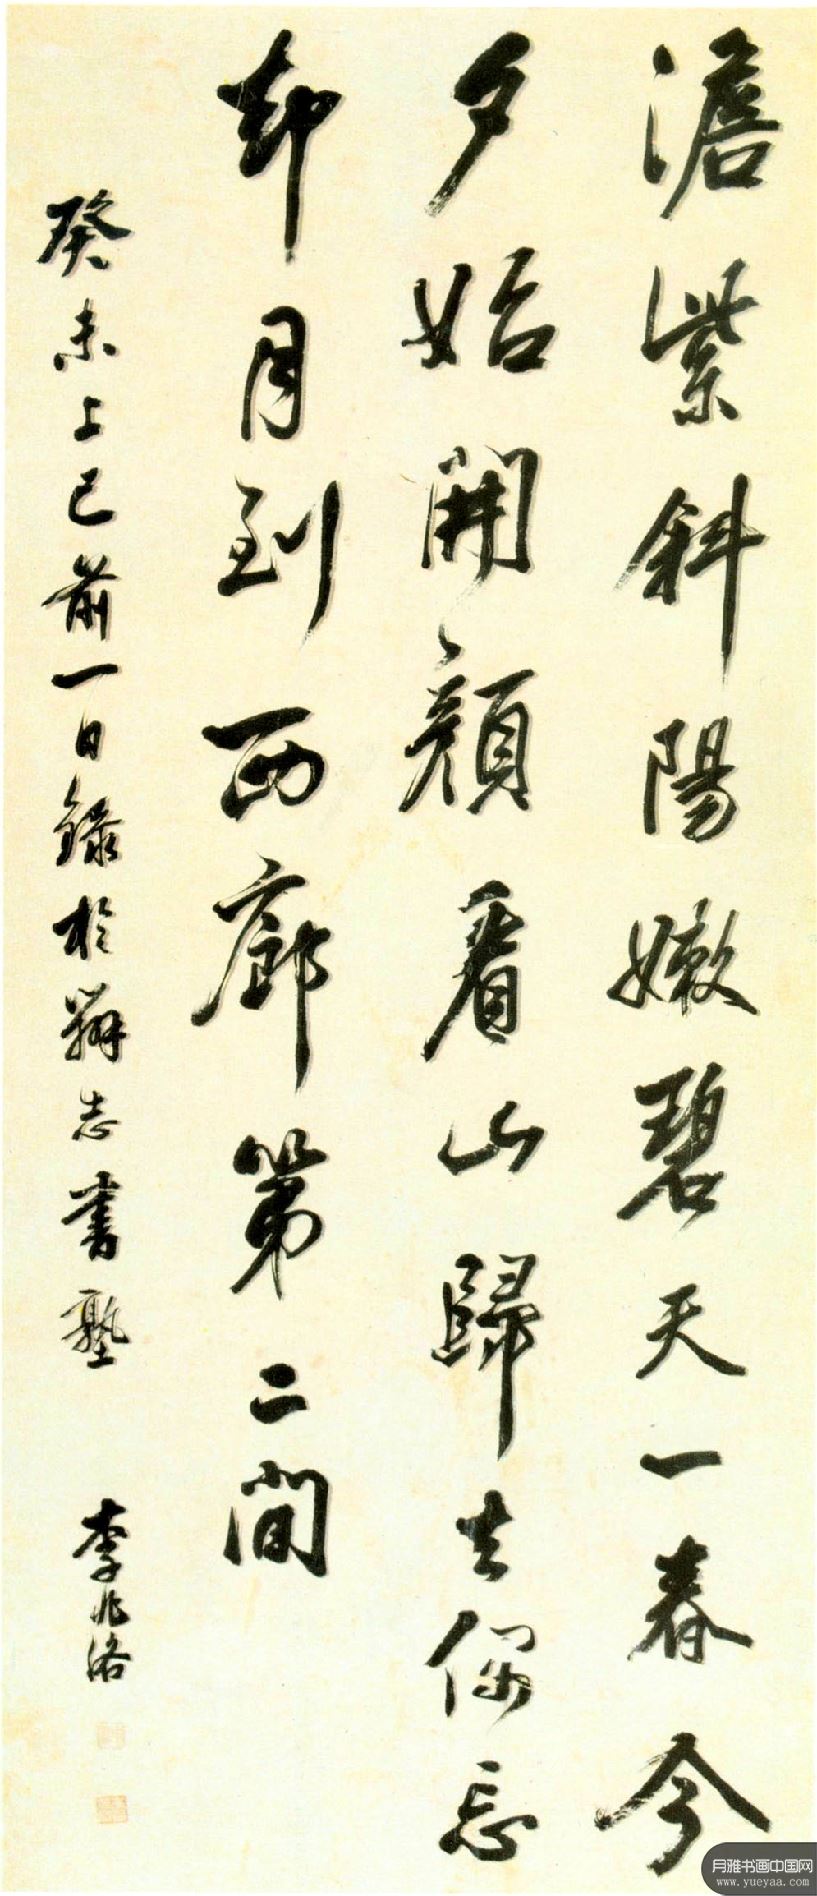 澹紫斜陽嫩碧天一春今
夕始開顏看山歸去偶忘
却月到西廊第二間
癸未上巳前一日錄於辨志書塾 李兆洛
月雅书画中国网
www.yueyaa.com